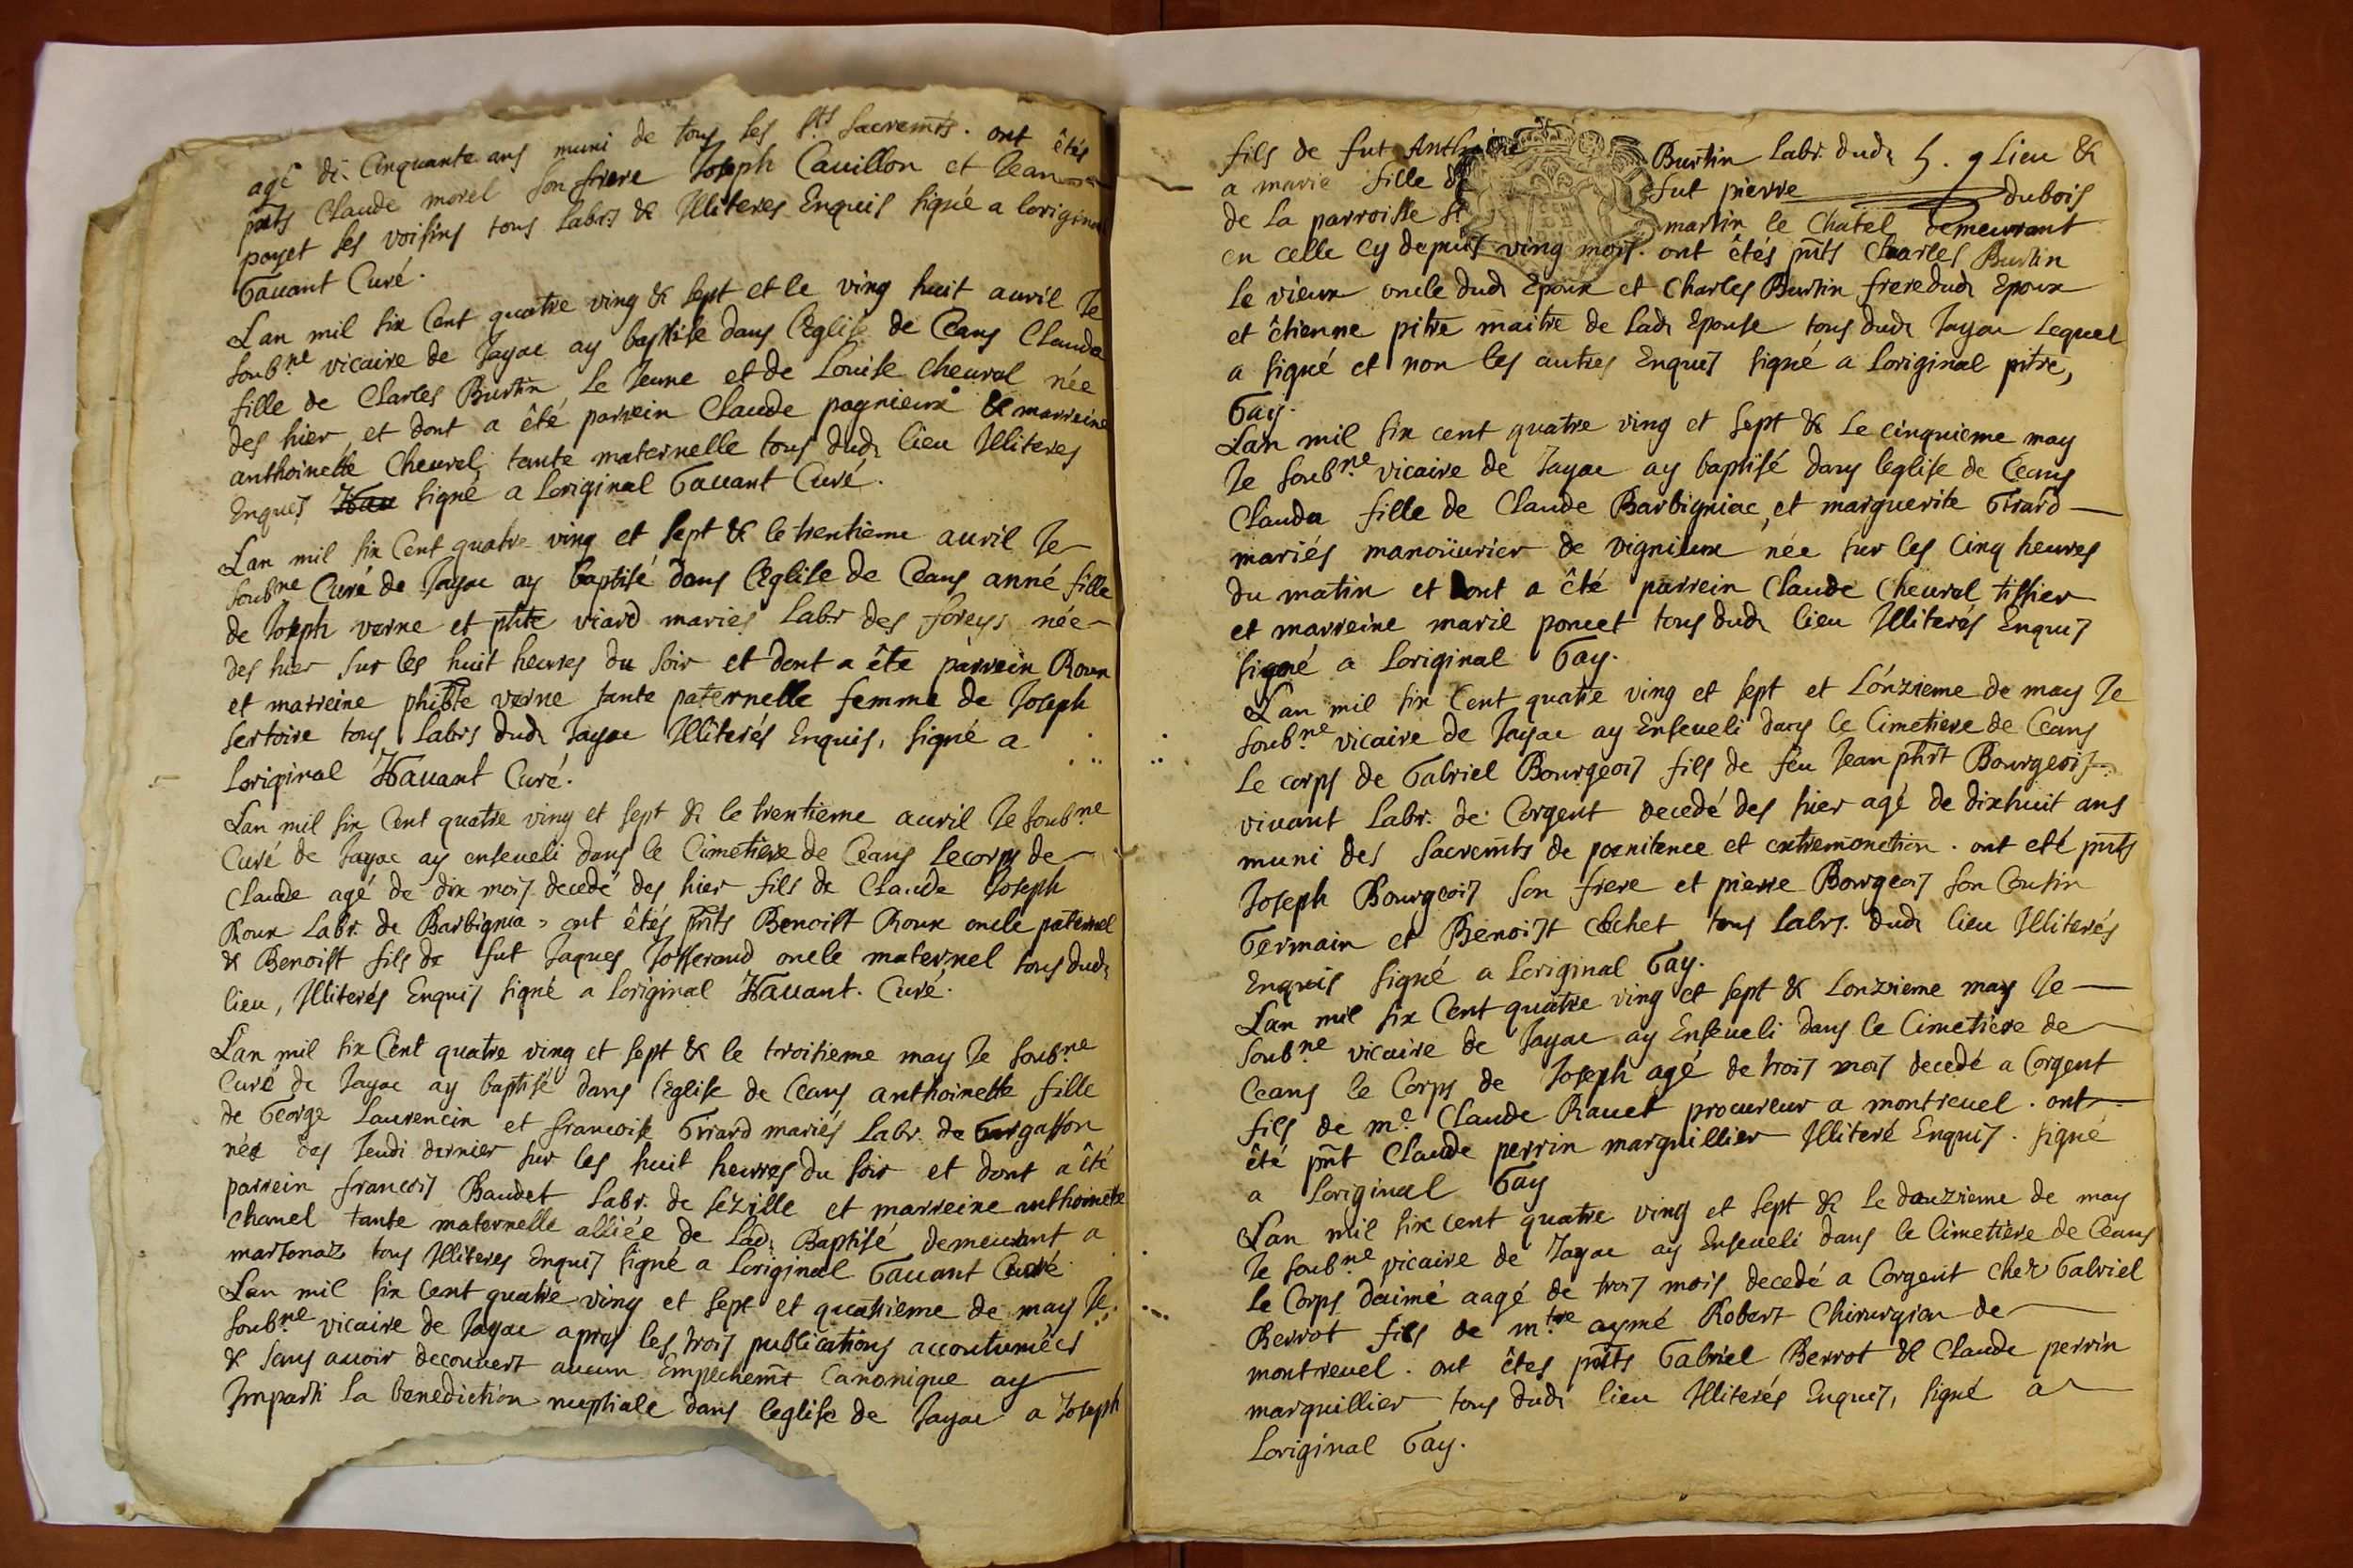 agé de Cinquante ans muni de tous les Sts Sacremts. ont êtés
pnts Claude morel son frere Joseph Cauillon et Jean
poyet ses voisins tous labrs & Illiteres Enquis signé a loriginal
Gauant Curé.
Lan mil six Cent quatre ving & sept et le ving huit auril Je
soubne vicaire de Jayac ay baptisé dans l'Eglise de Ceans Clauda
fille de Charles Burtin le Jeune et de Louise cheural née
des hier, et dont a êté parrein Claude pagnieux & marreine
anthoinette Cheurel tante maternelle tous dud. lieu Illiteres
Enquis signé a Loriginal Gauant Curé.
Lan mil six Cent quatre ving et sept & le trentieme auril Je
soubne Curé de Jayac ay baptisé dans l'Eglise de Ceans anné fille
de Joseph verne et phte viard mariés Labr des foreys née
des hier sur les huit heures du soir et dont a êté parrein Roux
et marreine phibte verne tante paternelle femme de Joseph
sertoire tous Labrs dud. Jayac Illiterés Enquis, signé a
Loriginal Hauant Curé.
Lan mil six Cent quatre ving et sept & le trentieme auril Je soubne
Curé de Jayac ay enseueli dans le Cimetiere de Ceans Le corps de
Claude agé de dix mois decedé des hier fils de Claude Joseph
Roux Labr. de Barbignia, ont êtés pnts Benoist Roux oncle paternel
& Benoist fils de fut Jaques Josserand oncle maternel tous dud.
lieu, Illiterés Enquis signé a Loriginal Hauant. Curé.
Lan mil six Cent quatre ving et sept & le troisieme may Je soubne
Curé de Jayac ay baptisé dans l'Eglise de Ceans anthoinette fille
de George Laurencin et francoise Girard mariés Labr. de Gargasson
née des Jeudi dernier sur les huit heures du soir et dont a êté
parrein francois Baudet Labr. de sézille et marreine anthoinette
chanel tante maternelle alliée de Lad. Baptisé demeurant a
marsonaz tous Illiteres Enquis signé a Loriginal Gauant Curé
Lan mil six Cent quatre ving et sept et quatrieme de may Je
soubne vicaire de Jayac apres les trois publications accoutumées
& sans auoir decouuert aucun Empechemt Canonique ay
Imparti la benediction nuptiale dans leglise de Jayac a Joseph
fils de fut Anthoine Burtin Labr. dud. lieu &
a marie fille de fut pierre dubois
de La parroisse St martin le Chatel demeurant
en celle Cy depuis ving mois. ont êtés pnts Charles Burtin
le vieux oncle dud. Epoux et Charles Burtin frere dud. Epoux
et êtienne pitre maitre de Lad. Epouse tous dud. Jayac Lequel
a signé et non les autres Enquis signé a Loriginal pitre,
Gay.
Lan mil six cent quatre ving et sept & Le cinquieme may
Je soubne vicaire de Jayac ay baptisé dans leglise de Ceans
Clauda fille de Claude Barbigniac, et marguerite Girard
mariés manoüurier de vignieux née sur les Cinq heures
du matin et dont a êté parrein Claude Cheural tissier
et marreine marie poncet tous dud. lieu Illiterés Enquis
signé a Loriginal Gay.
Lan mil six Cent quatre ving et sept et L'onzieme de may Je
soubne vicaire de Jayac ay Enseueli dans le Cimetiere de Ceans
Le corps de Gabriel Bourgeois fils de feu Jean phbt Bourgeois
viuant Labr. de Corgent decedé des hier agé de dixhuit ans
muni des Sacremts de poenitence et extremonction. ont eté pnts
Joseph Bourgeois son frere et pierre Bourgeois son Cousin
Germain et Benoist Cochet tous labrs. dud. lieu Illiterés
Enquis signé a Loriginal Gay.
Lan mil six Cent quatre ving et sept & Lonzieme may Je
soubne vicaire de Jayac ay Enseueli dans le Cimetiere de
Ceans le Corps de Joseph agé de trois mois decedé a Corgent
fils de me Claude Rauet procureur a montreuel. ont
êté pnt Claude perrin marguillier Illiteré Enquis. signé
a Loriginal Gay
Lan mil six cent quatre ving et sept & Le douzieme de may
Je soubne vicaire de Jayac ay Enseueli dans le Cimetiere de Ceans
Le Corps d'aimé aagé de trois mois decedé a Corgent chez Gabriel
Berrot fils de mtre aymé Robert Chirurgien de
montreuel. ont êtes pnts Gabriel Berrot & Claude perrin
marguillier tous dud. lieu Illiterés Enquis, signé a
Loriginal Gay.